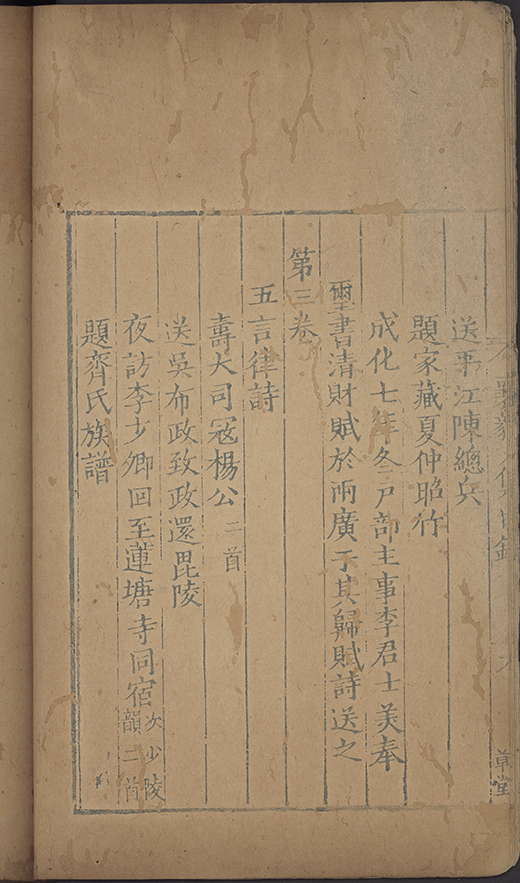 送 江陳總兵
題家藏夏仲昭竹
成化七年冬戶部主事李君士美奉
璽書清財賦於兩廣于其歸賦詩送之
第三卷
五言律詩
壽大司寇楊公二首
送吳布政致政還毘陵
夜訪李少卿回至蓮塘寺同宿次少陵韻二首
題齊氏族譜
草堂